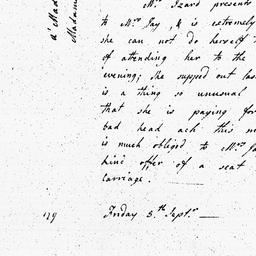 Mrs Izard presents
to Mrs Jay, & is extremely
she can not do herself t
of attending her to the
evening; she supped out las
is a thing so unusual
that she is paying for
bad head ach this m
is much obliged to Mrs Ja
kind offer of a seat
carriage.
Friday 3.th Septr
a' Mad
Madam